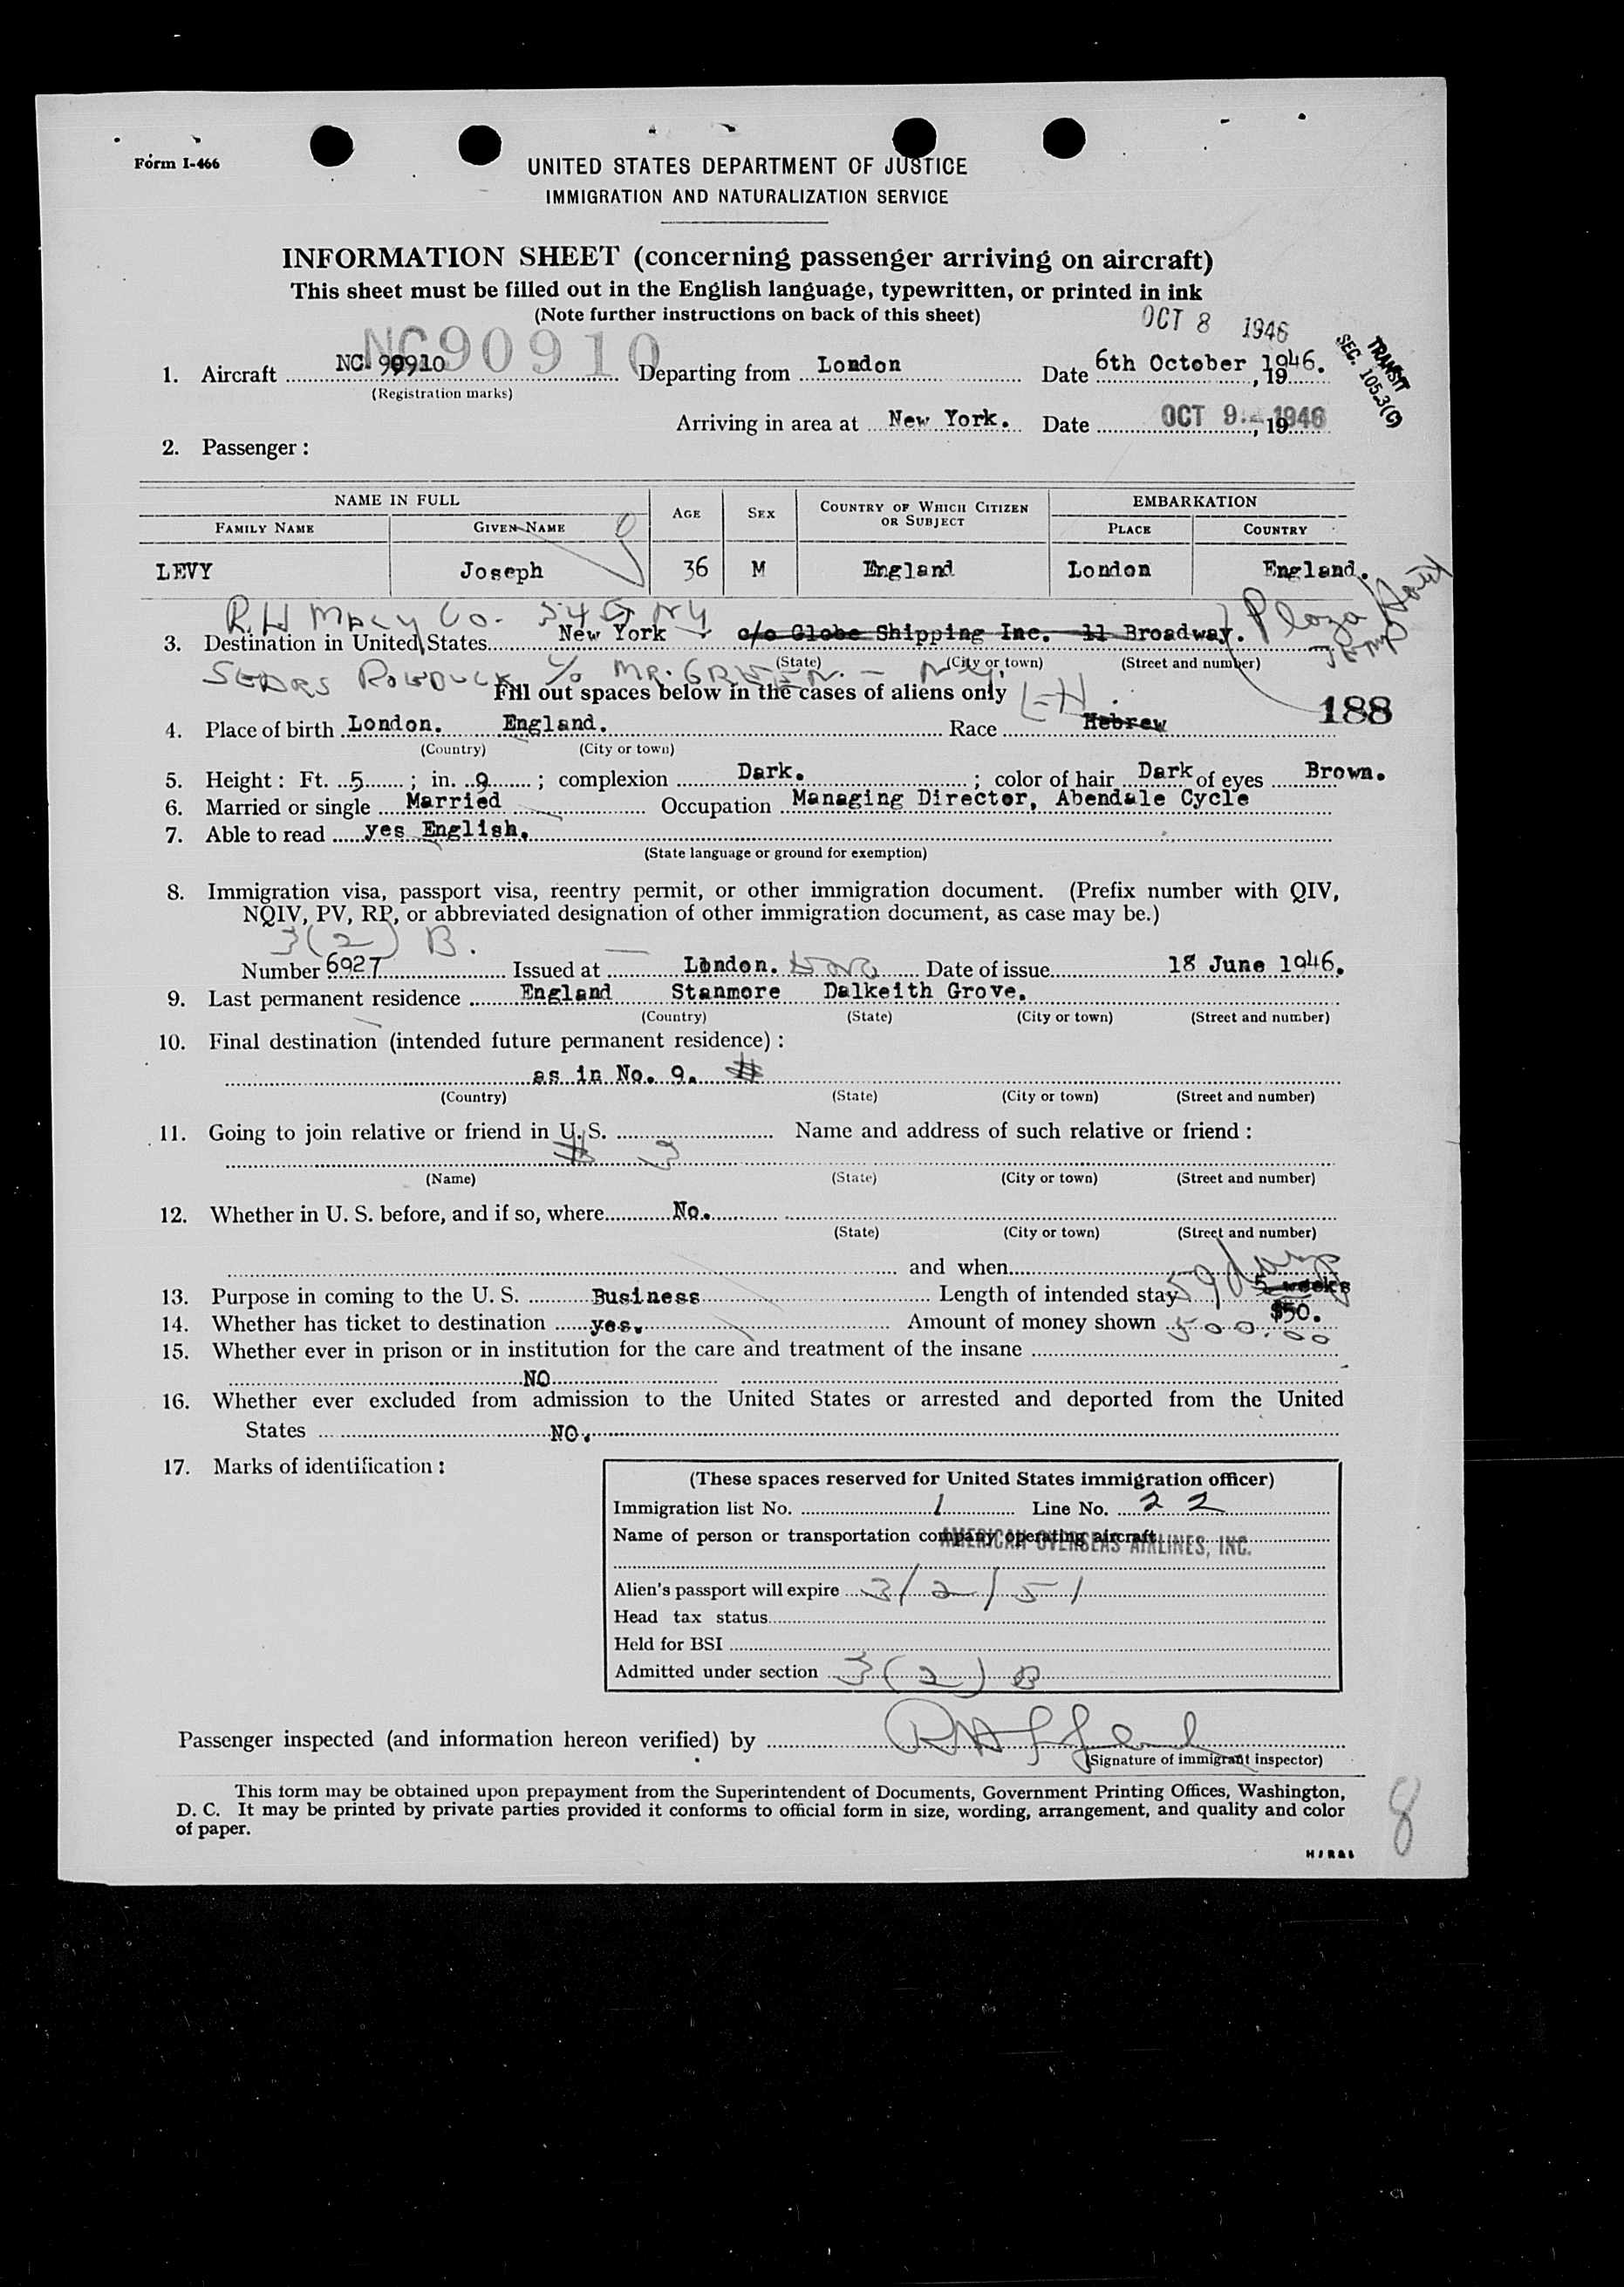 Form I-466
UNITED STATES DEPARTMENT OF JUSTICE
IMMIGRATION AND NATURALIZATION SERVICE
INFORMATION SHEET (concerning passenger arriving on aircraft)
This sheet must be filled out in the English language, typewritten, or printed in ink
(Note further instructions on back of this sheet)
OCT 8 1946
TRANSIT
SEC. 105.3(C)
NC90910
1. Aircraft NC. 90910 Departing from London Date 6th October 1946. , 19
(Registration marks)
Arriving in area at New York. Date OCT 9 1946 , 19
2. Passenger :
NAME IN FULL AGE SEX COUNTRY OF WHICH CITIZEN OR SUBJECT EMBARKATION
FAMILY NAME GIVEN NAME PLACE COUNTRY
LEVY Joseph 36 M England London England.
RH Macy Co. 34 St NY Plaza Hotel
3. Destination in United States New York c/o Globe Shipping Inc. 11 Broadway. Temp
(State) (City or town) (Street and number)
SEARS ROEBUCK c/o MR. GREEN. - N.Y.
Fill out spaces below in the cases of aliens only
188
4. Place of birth London. England. Race Hebrew
(Country) (City or town)
5. Height : Ft. 5 ; in. 9 ; complexion Dark. ; color of hair Dark of eyes Brown.
6. Married or single Married Occupation Managing Director, Abendale Cycle
7. Able to read yes English.
(State language or ground for exemption)
8. Immigration visa, passport visa, reentry permit, or other immigration document. (Prefix number with QIV,
NQIV, PV, RP, or abbreviated designation of other immigration document, as case may be.)
3(2) B.
Number 6927 Issued at London. Date of issue 18 June 1946.
9. Last permanent residence England Stanmore Dalkeith Grove.
(Country) (State) (City or town) (Street and number)
10. Final destination (intended future permanent residence) :
as in No. 9.
(Country) (State) (City or town) (Street and number)
11. Going to join relative or friend in U. S. Name and address of such relative or friend :
# 3
(Name) (State) (City or town) (Street and number)
12. Whether in U. S. before, and if so, where No.
(State) (City or town) (Street and number)
and when
13. Purpose in coming to the U. S. Business Length of intended stay 59 days 5 weeks
14. Whether has ticket to destination yes. Amount of money shown $50. 500.00
15. Whether ever in prison or in institution for the care and treatment of the insane
NO
16. Whether ever excluded from admission to the United States or arrested and deported from the United
States NO.
17. Marks of identification :
(These spaces reserved for United States immigration officer)
Immigration list No. 1 Line No. 22
Name of person or transportation company operating aircraft AMERICAN OVERSEAS AIRLINES, INC.
Alien's passport will expire 3/2/51
Head tax status
Held for BSI
Admitted under section 3(2) B
Passenger inspected (and information hereon verified) by
(Signature of immigrant inspector)
This form may be obtained upon prepayment from the Superintendent of Documents, Government Printing Offices, Washington,
D. C. It may be printed by private parties provided it conforms to official form in size, wording, arrangement, and quality and color
of paper.
8